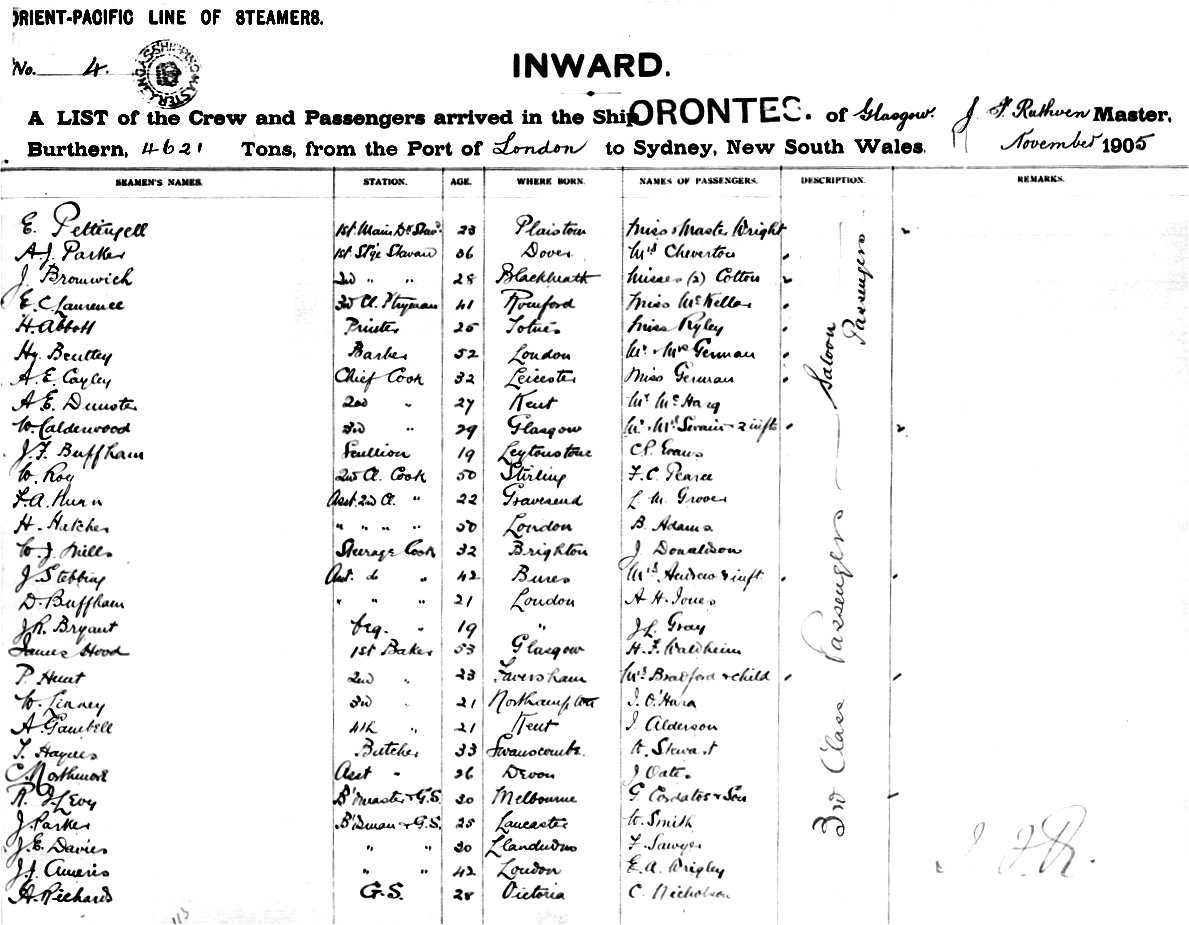 ORIENT-PACIFIC LINE OF STEAMERS.
No. 4.
INWARD.
A LIST of the Crew and Passengers arrived in the Ship ORONTES. of Glasgow. J. F. Ruthven Master,
Burthern, 4621 Tons, from the Port of London to Sydney, New South Wales. November 1905
SEAMEN'S NAMES. STATION. AGE. WHERE BORN. NAMES OF PASSENGERS. DESCRIPTION. REMARKS.
E. Pettengell 1st Main Dk Stwd. 23 Plaistow Miss & Master Wright
A.J. Parker 1st St'ge 36 Dover Mrs Cheverton
J. Bromwich 3rd " " 28 Blackheath Misses (2) Cotton
E.C. Laurence 3rd Cl. P'tryman 41 Romford Miss McKellar
H. Abbott Printer 25 Totnes Miss Ryley
Hy. Bentley Barber 52 London Mr. & Mrs German
A. E. Cayley Chief Cook 32 Leicester Miss German
A. E. Dunster 2nd " 27 Kent Mr McHarg
W. Calderwood 3rd " 29 Glasgow Mr. Mrs Swain & 2 infts
J. F. Buffham Scullion 19 Leytonstone C.P. Evans
W. Roy 2nd Cl. Cook 50 Stirling F. C. Pearce
F. A. Nunn Asst. 2nd Cl. " 22 Gravesend L. M. Grover
H. Hatcher " " " " 30 London B. Adams
W. J. Mills Steerage Cook 32 Brighton J Donaldson
J. Stebbing Asst. do " 42 Bures Mrs Andrews & inft.
D. Buffham " " " 21 London A H. Jones
J.R. Bryant Veg. " 19 " J L. Gray
James Hood 1st Baker 53 Glasgow H. F. Waldheim
P. Hunt 2nd " 23 Faversham Mrs Bradford & child
W. Linney 3rd " 21 Northampton J. O'Hara
A. Gambell 4th " 21 Kent J. Alderson
T. Haynes Butcher 33 Swanscombe W. Stewart
C. Northmore Asst " 26 Devon J Oates
R. J. Levy B'master & G.S. 30 Melbourne G. Cordatos & Son
J. Parker B'dman & G.S. 25 Lancaster W. Smith
J. E. Davies " " 30 Llandudno F Sawyer
J.J. " " 42 London E. A. Wrigley
A. Richards G.S. 28 Victoria C. Nicholson
3rd Class Passengers
Saloon Passengers
J. F. R.